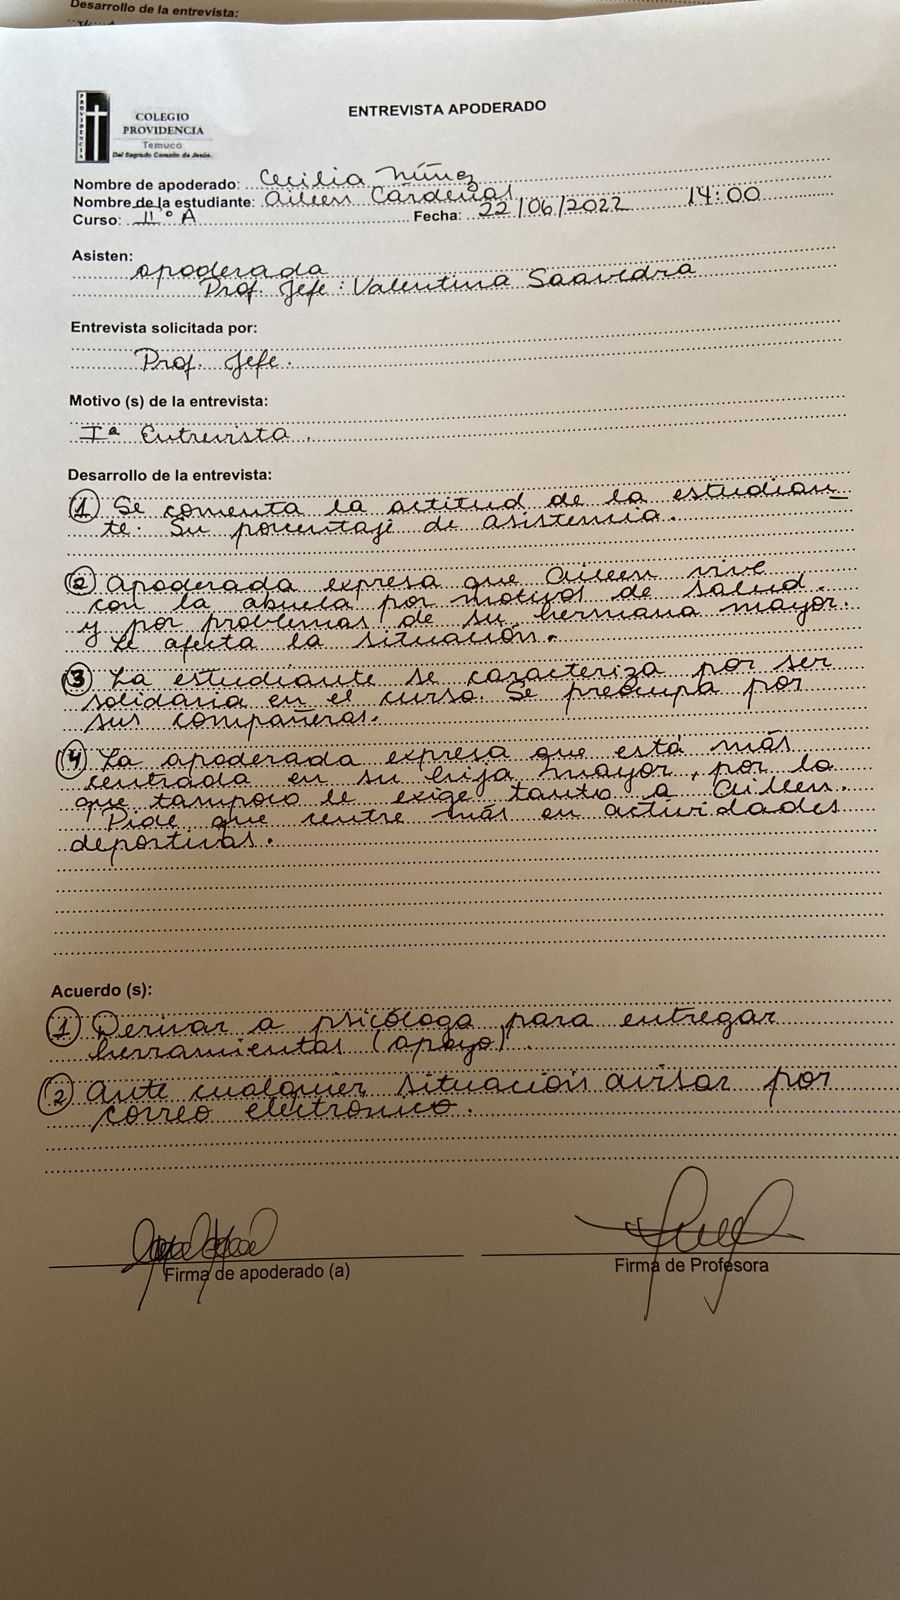 Desarrollo de la entrevista:
PROVIDENCIA
COLEGIO
PROVIDENCIA
Temuco
Del Sagrado Corazón de Jesús.
ENTREVISTA APODERADO
Nombre de apoderado: Cecilia Núñez
Nombre de la estudiante: Aileen Cárdenas
Curso: II° A Fecha: 22/06/2022 14:00
Asisten:
apoderada
Prof. Jefe: Valentina Saavedra
Entrevista solicitada por:
Prof. Jefe.
Motivo (s) de la entrevista:
Iª Entrevista.
Desarrollo de la entrevista:
① Se comenta la actitud de la estudian-
te. Su porcentaje de asistencia.
② Apoderada expresa que Aileen vive
con la abuela por motivos de salud
y por problemas de su hermana mayor.
Le afecta la situación.
③ La estudiante se caracteriza por ser
solidaria en el curso. Se preocupa por
sus compañeras.
④ La apoderada expresa que está más
centrada en su hija mayor, por lo
que tampoco le exige tanto a Aileen.
Pide que centre más en actividades
deportivas.
Acuerdo (s):
① Derivar a psicóloga para entregar
herramientas (apoyo).
② Ante cualquier situación avisar por
correo electrónico.
Firma de apoderado (a)
Firma de Profesora